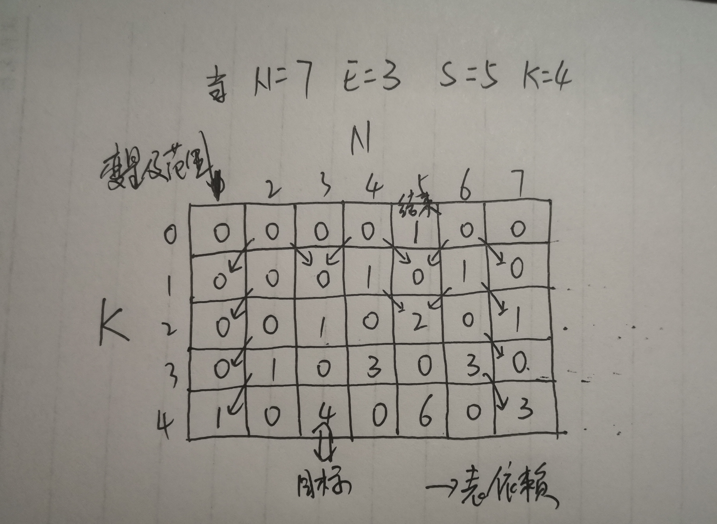 当 N=7 E=3 S=5 K=4
N
变量及范围
2 3 4 5 6 7
结束
0 0 0 0 0 1 0 0
1 0 0 0 1 0 1 0
K
2 0 0 1 0 2 0 1
3 0 1 0 3 0 3 0
4 1 0 4 0 6 0 3
目标 →表依赖